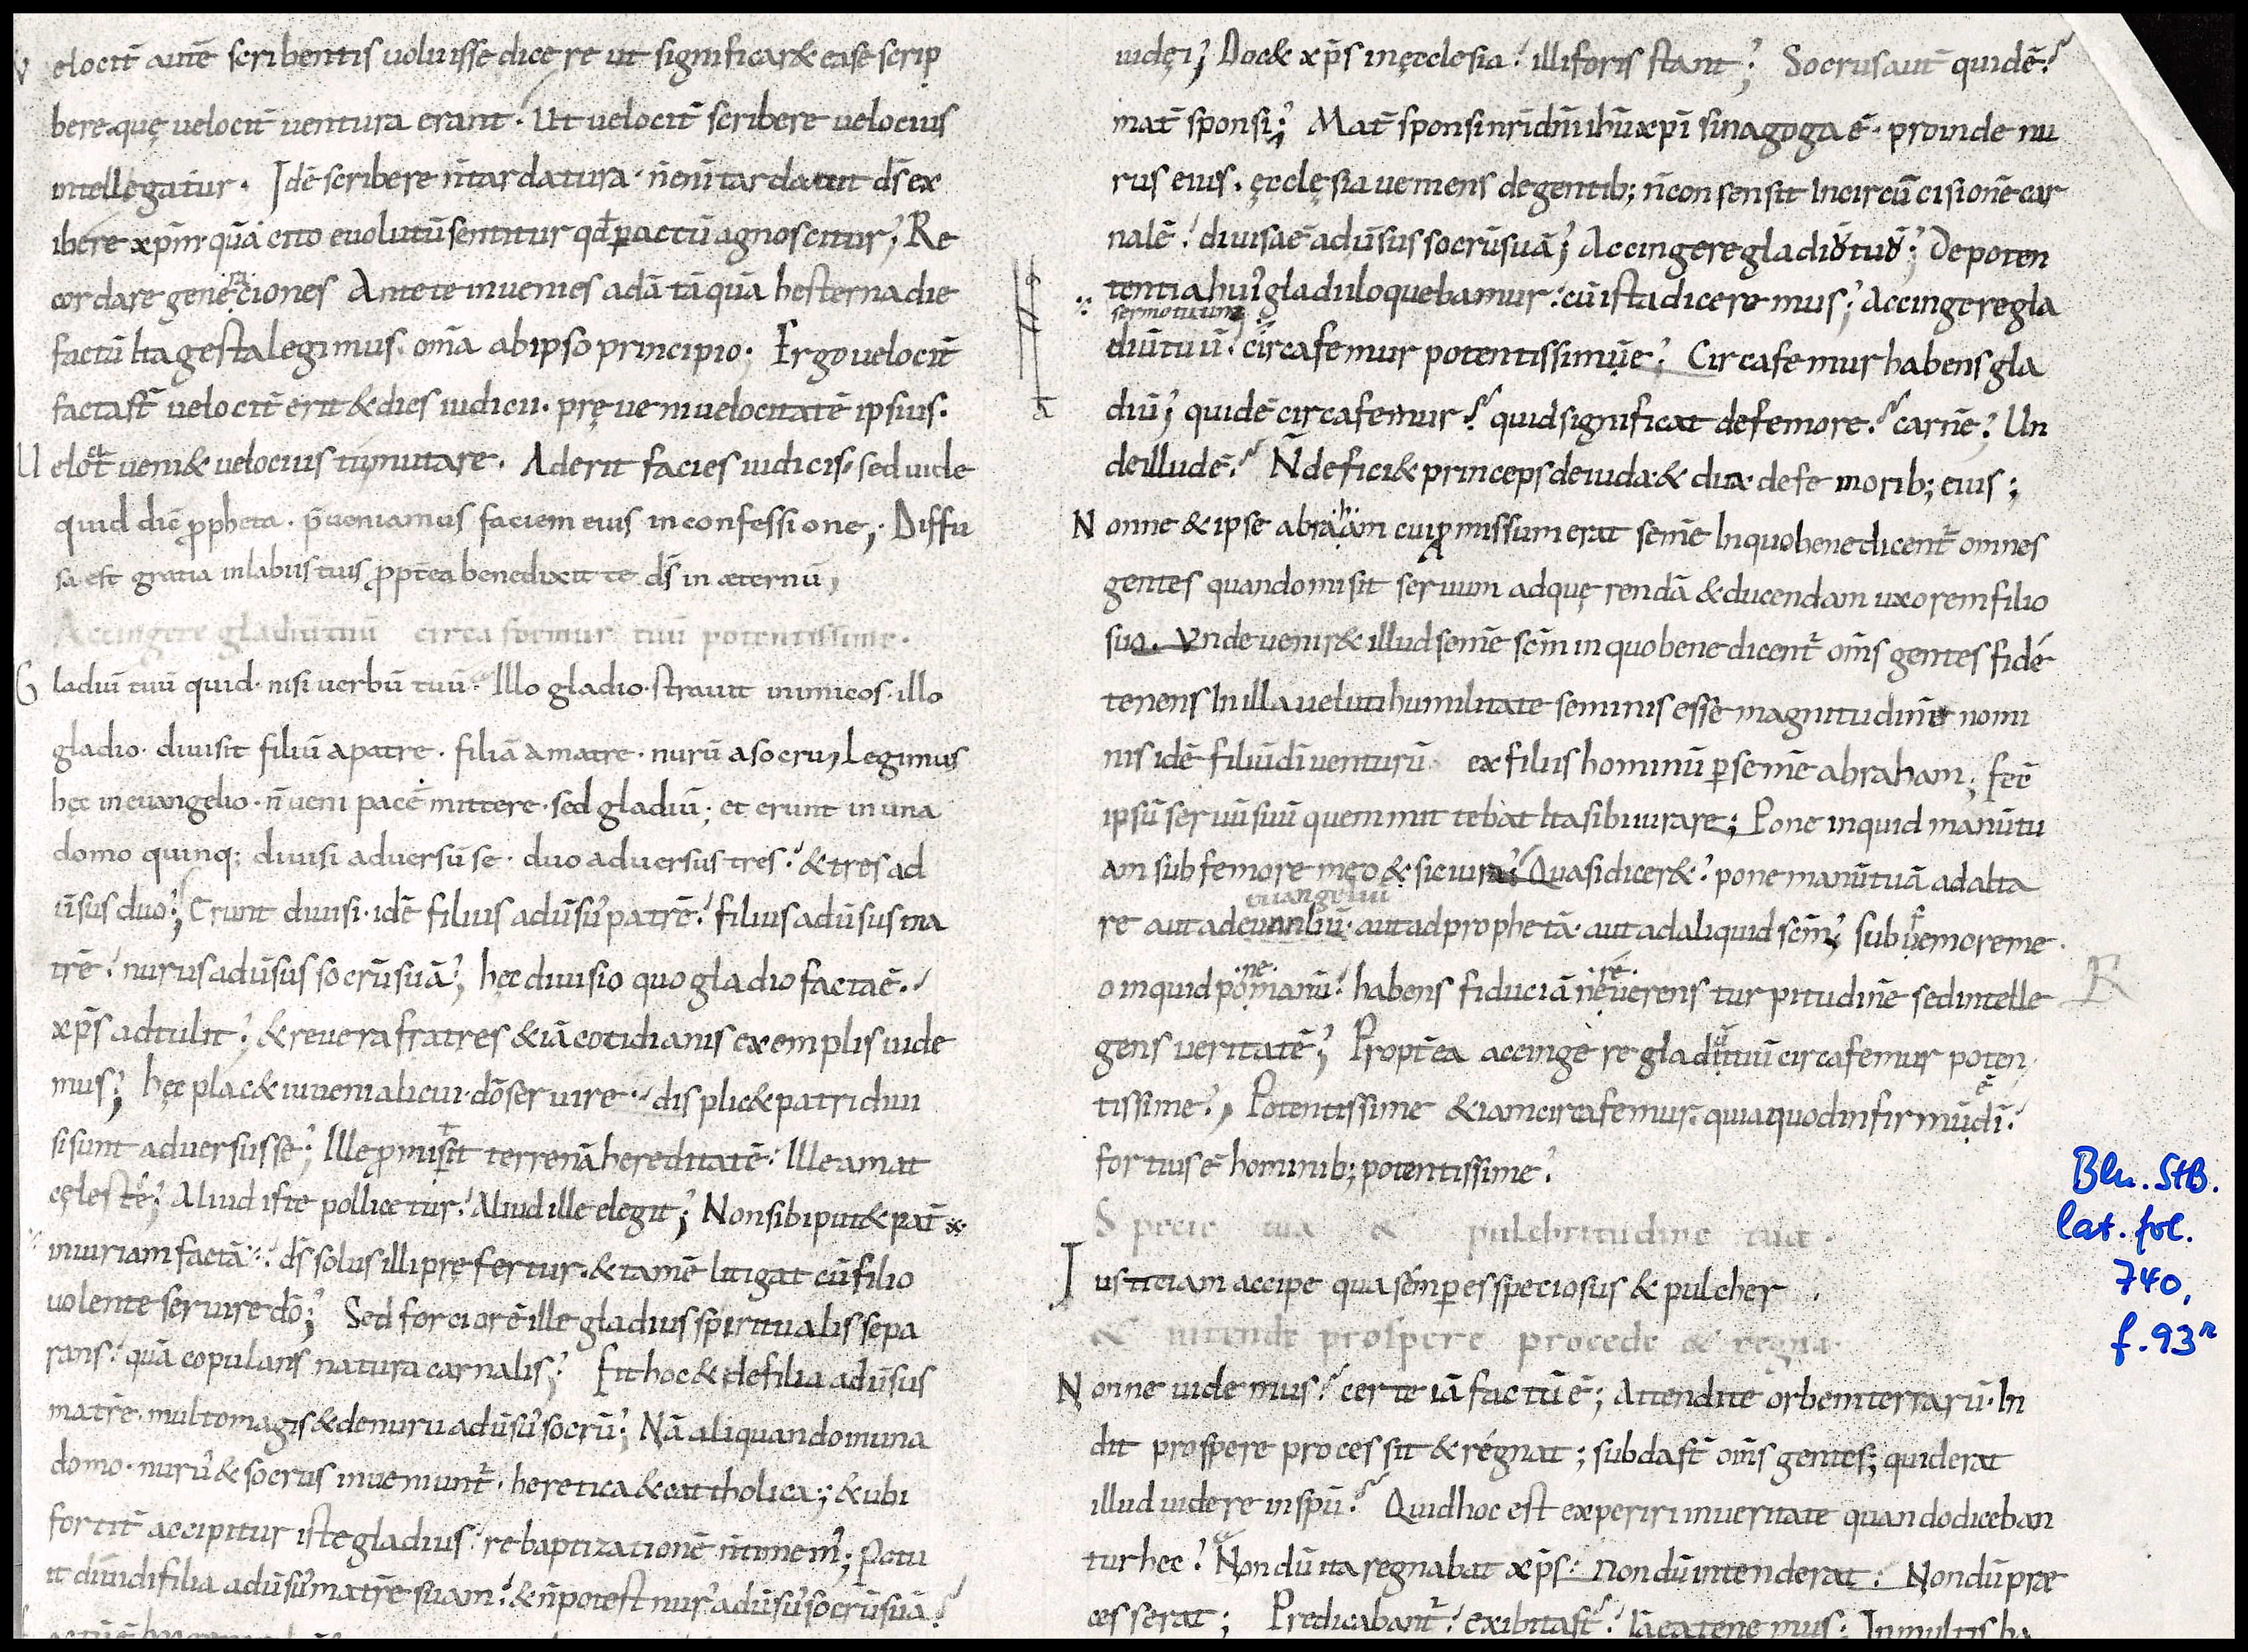 Velocit̄ autē scribentis uoluisse dicere ut significar& ea se scrip
bere quę uelocit̄ uentura erant. Ut uelocit̄ scribere uelocius
intellegatur. Idē scribere n̄ tardatura.
ibere xp̄m quā cito euolutū sentitur qd̄ peractū agnoscitur; Re
cordare generaciones Ante te inuenies adā tāquā hesterna die
factū Ita gesta legimus om̄a ab ipso principio; Ergo uelocit̄
facta st̄ uelocit̄ erit & dies iudicii. pręueni uelocitatē ipsius.
Uelocit̄ ueni& uelocius tu mutare. Aderit facies iudicis sed uide
quid dic̄ ꝓpheta. p̄ueniamus faciem eius in confessione; Diffu
sa est gratia in labiis tuis ꝓpt̄ea benedixit te ds̄ in æternū;
Accingere gladiū tuū circa foemur tuū potentissime.
Gladiū tuū quid. nisi uerbū tuū. Illo gladio strauit inimicos. illo
gladio. diuisit filiū a patre. filiā a matre. nurū a socru; Legimus
hęc in euangelio. n̄ ueni pacē mittere. sed gladiū; et erunt in una
domo quinq; diuisi aduersū se. duo aduersus tres. & tres ad
ūsus duo; Erunt diuisi. idē filius adūsus patrē. filius adūsus ma
trē. nurus adūsus socrū suā; hęc diuisio quo gladio facta ē.
xp̄s adtulit; & reuera fratres & iā cotidianis exemplis uide
mus; hęc plac& iuueni alicui. dō seruire. displic& patri diui
si sunt aduersus se; Ille ꝓmisit terrenā hereditatē. Ille amat
cęlestē; Aliud iste pollicetur. Aliud ille elegit; Non sibi put& pat̄
iniuriam factā. ds̄ solus illi prefertur. & tamē litigat cū filio
uolente seruire dō; Sed forciorē ille gladius spiritualis sepa
rans. quā copulans natura carnalis; Fit hoc & de filia adūsus
matrē. multo magis & de nuru adūsus socrū; Nā aliquando in una
domo. nurus & socrus inueniunt̄. heretica & catholica; & ubi
fortit̄ accipitur iste gladius. rebaptizationē n̄ timem̄; Potu
it diuidi filia adūsus matrē suam. & n̄ potest nurus adūsus socrū suā.
iudęi; Doc& xp̄s in ęcclesia. illi foris stant; Socrus aut̄ quidē.
mat̄ sponsi; Mat̄ sponsi nr̄i dn̄i ihū xp̄i sinagoga ē. proinde nu
rus eius. ęcclęsia uemens de gentib; n̄ consensit In circū cisionē car
nalē. diuisa ē adūsus socrū suā; Accingere gladiū tuū; De poten
tentia hui' gladii loquebamur. cū ista diceremus; Accingere gla
sermo tuum
diū tuū. circa femur potentissime; Circa femur habens gla
diū; quidē circa femur. quid significat de femore. carnē. Un
de illudē. N̄ defici& princeps de iuda & dux de femorib; eius;
Nonne & ipse abraham cui promissum erat semē In quo benedicent̄ omnes
gentes quando misit seruum ad quęrendā & ducendam uxorem filio
suo. Vnde uenir& illud semē scm̄ in quo benedicent̄ om̄s gentes fidē
tenens In illa ueluti humilitate seminis esse magnitudinē nomi
nis idē filiū dī uenturū ex filiis hominū per semē abraham; fec̄
ipsū seruū suū quem mittebat Ita sibi iurare; Pone inquid manū tu
am sub femore meo & sic iura; Quasi dicer&. pone manū tuā ad alta
euangeliū
re aut ad euanliū. aut ad prophetā. aut ad aliquid scm̄; sub femore me
o inquid pone manū. habens fiduciā ne reuerens turpitudinē sed intelle
gens ueritatē; Propt̄ea accingere gladiū tuū circa femur poten
tissime; Potentissime & iam circa femur. quia quod infirmū dī.
fortius ē hominib; potentissime.
Specie tua & pulchritudine tua.
Iusticiam accipe qua semper es speciosus & pulcher.
& intende prospere procede & regna.
Nonne uidemus. certe iā factū ē; Attendite orbem terrarū. In
dit prospere processit & régnat; subda st̄ om̄s gentes; quid erat
illud uidere in spū. Quid hoc est experiri in ueritate quando diceban
tur hec. Nondū ita regnabat xp̄s. nondū intenderat. Nondū præ
cesserat; Predicabant̄. exibita st̄. Iā ea tenemus; In multis ha
Bln. StB.
lat. fol.
740,
f. 93r